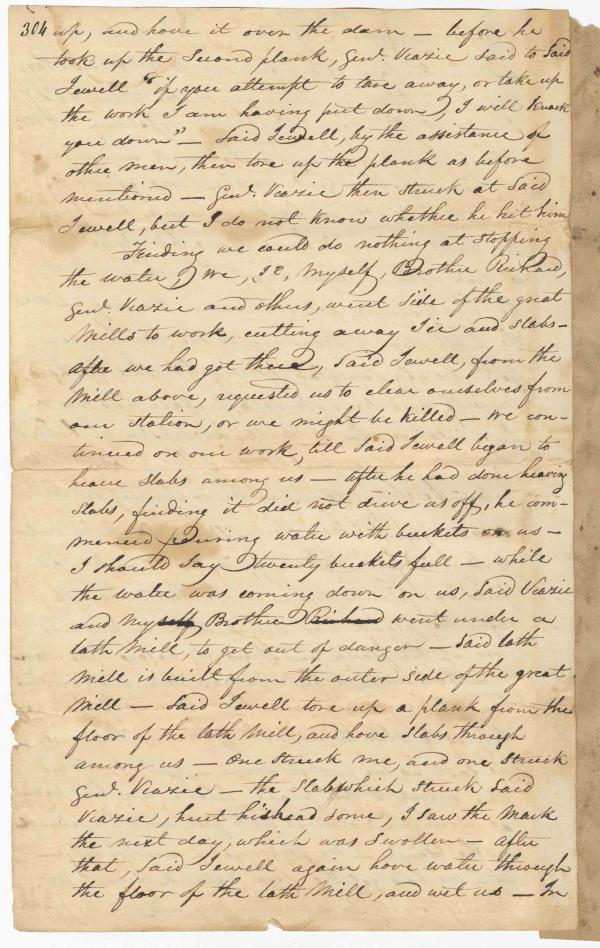 304 up, and hove it over the dam — before he
took up the Second plank, Genl. Veazie said to Said
Jewell "if you attempt to tare away, or take up
the work I am having put down, I will knock
you down" — Said Jewell, by the assistance of
other men, then tore up the plank as before
mentioned — Genl. Veazie then struck at Said
Jewell, but I do not know whether he hit him
Finding we could do nothing at stopping
the water, We, I E, myself, Brother Richard,
Genl. Veazie and others, went side of the great
Mills to work, cutting away Ice and slabs —
after we had got there, Said Jewell, from the
Mill above, requested us to clear ourselves from
our station, or we might be killed — We con-
tinued on our work, till Said Jewell began to
heave slabs among us — after he had done heaving
slabs, finding it did not drive us off, he com-
menced pouring water with buckets on us —
I should say twenty buckets full — while
the water was coming down on us, Said Veazie
and my Brother went under a
lath Mill, to get out of danger — Said lath
Mill is built from the outer side of the great
Mill — Said Jewell tore up a plank from the
floor of the lath Mill, and hove slabs through
among us — One struck me, and one struck
Genl. Veazie — the slab which struck said
Veazie, hurt his head some, I saw the mark
the next day, which was swollen — after
that, Said Jewell again hove water through
the floor of the lath Mill, and wet us — In